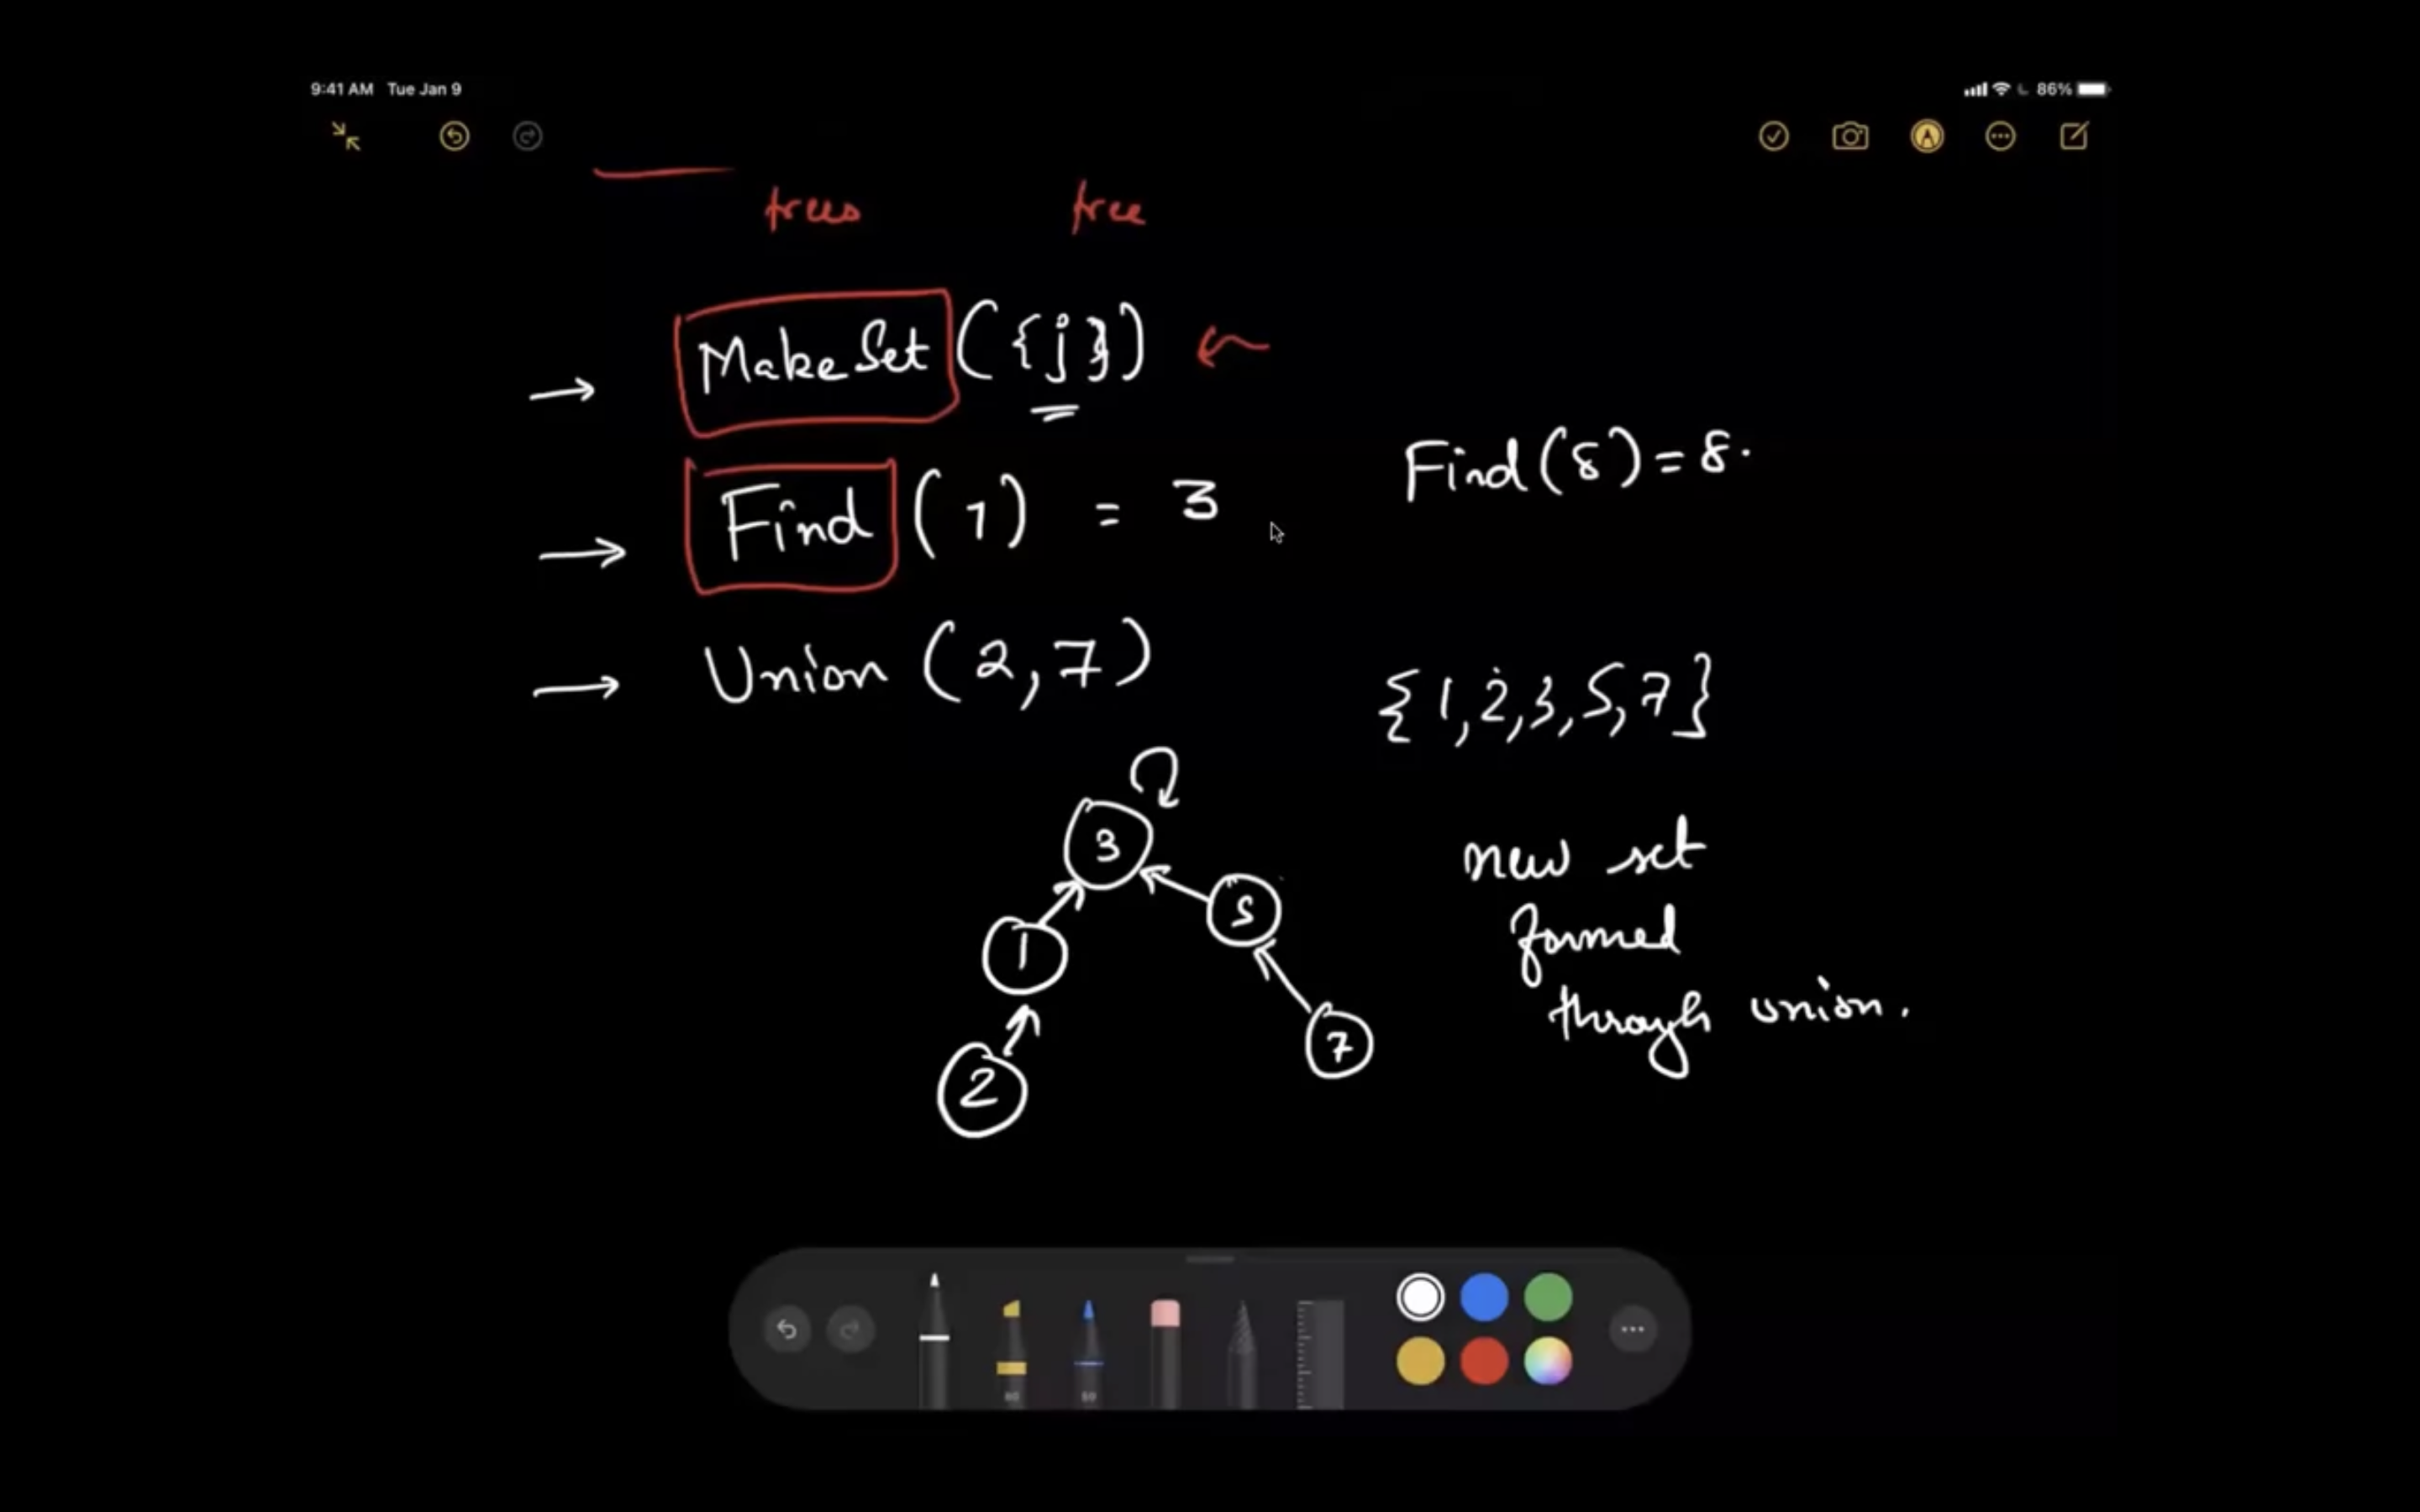 9:41 AM Tue Jan 9
86%
trees tree
MakeSet ({j})
Find(8)=8.
Find (1) = 3
Union (2,7)
{1,2,3,5,7}
3
new set
5
formed
1
through union.
7
2
80
50